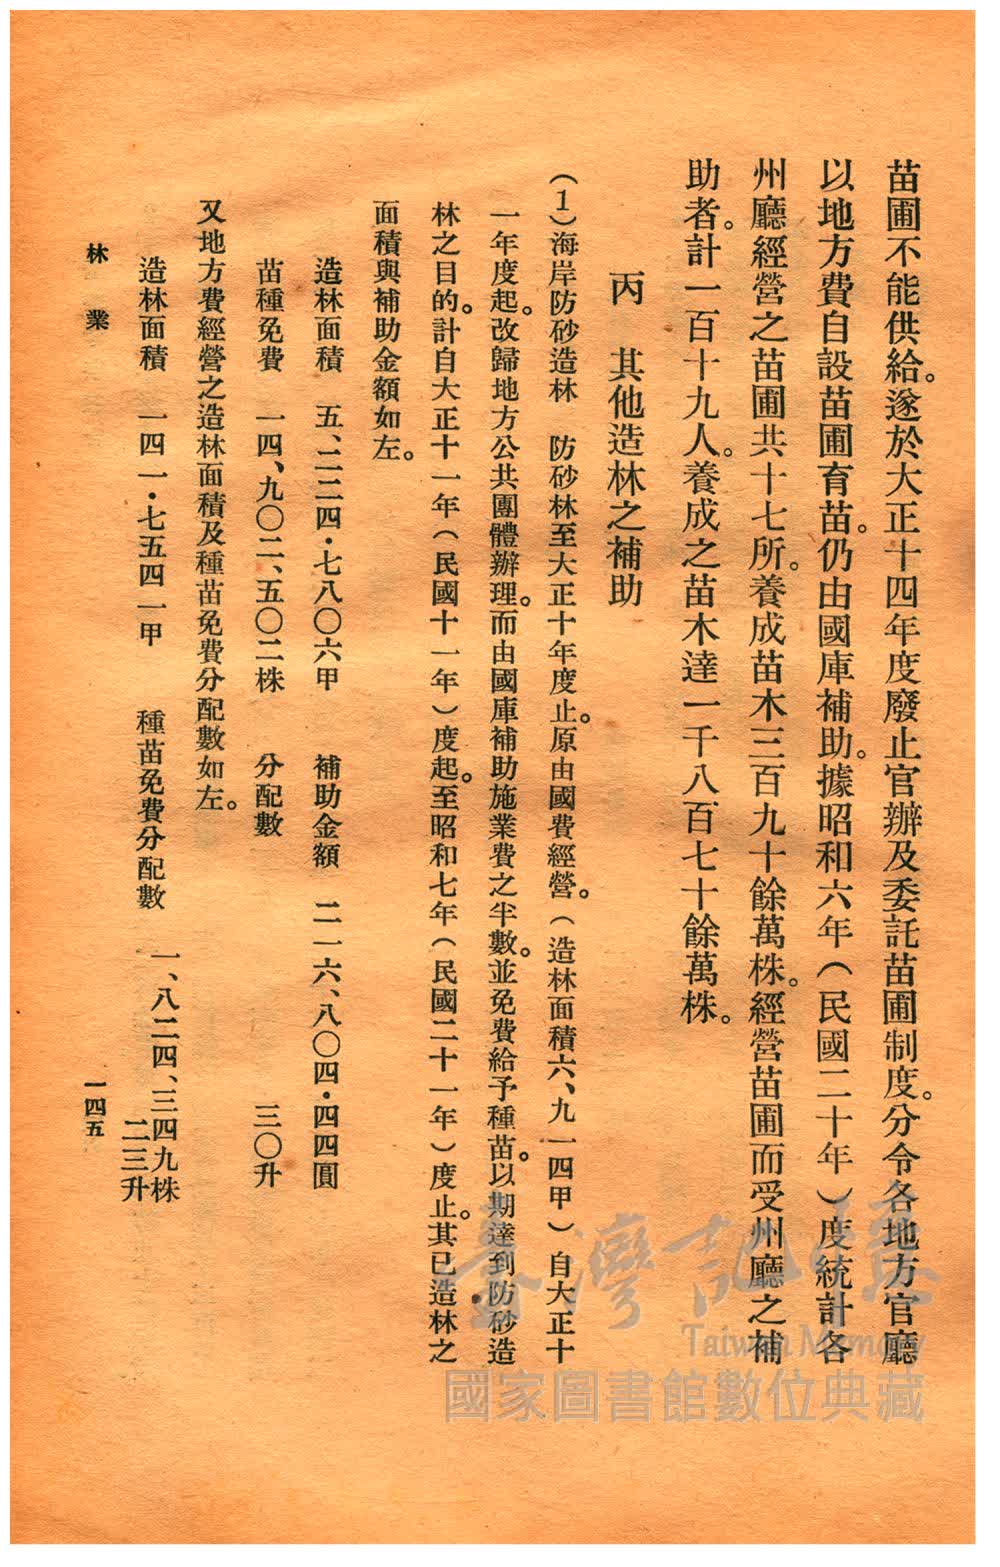 苗圃不能供給。遂於大正十四年度廢止官辦及委託苗圃制度。分令各地方官廳
以地方費自設苗圃育苗。仍由國庫補助。據昭和六年（民國二十年）度統計各
州廳經營之苗圃共十七所。養成苗木三百九十餘萬株。經營苗圃而受州廳之補
助者。計一百十九人。養成之苗木達一千八百七十餘萬株。
丙　其他造林之補助
（1）海岸防砂造林　防砂林至大正十年度止。原由國費經營。（造林面積六、九一四甲）自大正十
一年度起。改歸地方公共團體辦理。而由國庫補助施業費之半數。並免費給予種苗。以期達到防砂造
林之目的。計自大正十一年（民國十一年）度起。至昭和七年（民國二十一年）度止。其已造林之
面積與補助金額如左。
造林面積　五、二二四・七八〇六甲　補助金額　二一六、八〇四・四四圓
苗種免費　一四、九〇二、五〇二株　分配數　三〇升
又地方費經營之造林面積及種苗免費分配數如左。
造林面積　一四一・七五四一甲　種苗免費分配數　一、八二四、三四九株
二三升
林業
一四五
臺灣記憶
Taiwan Memory
國家圖書館數位典藏